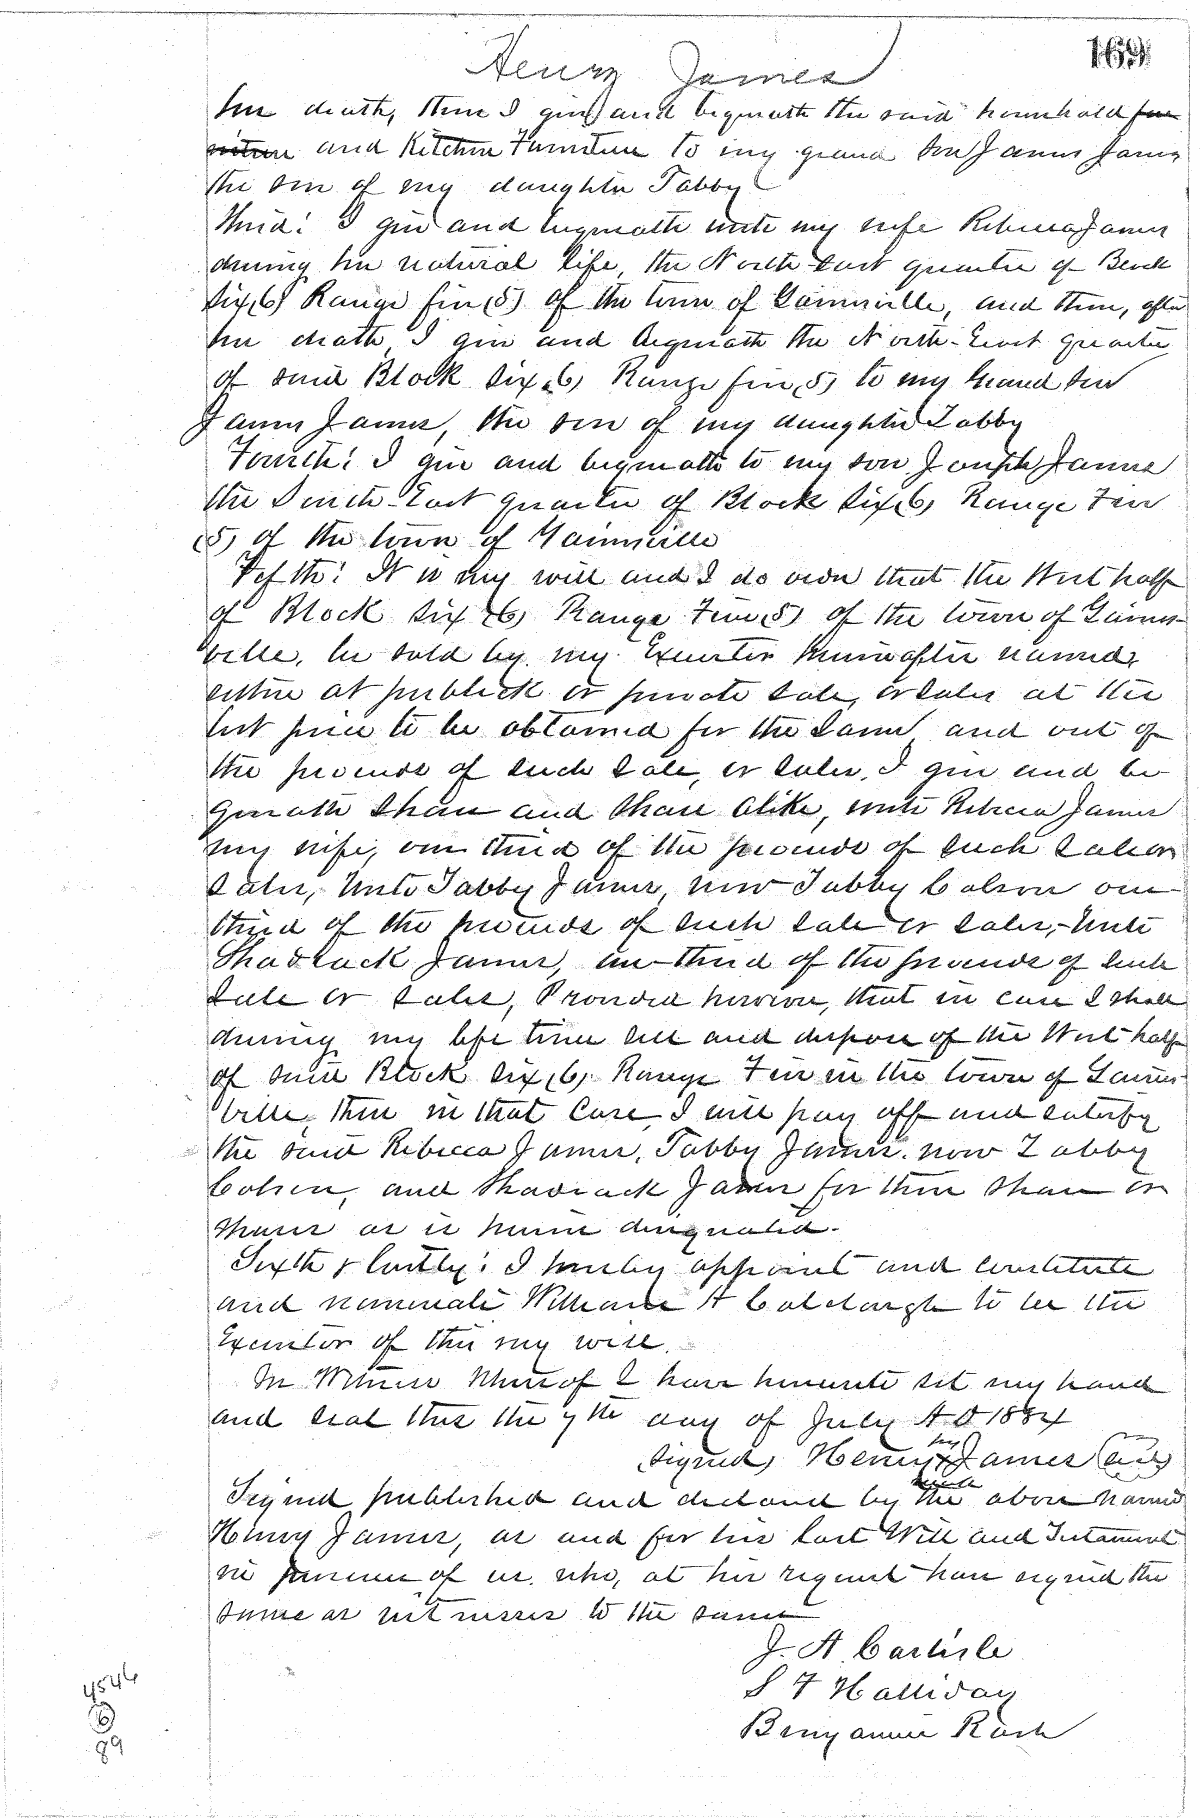 Henry James
169
her death, then I give and bequeath the said household fur
niture and Kitchen Furniture to my grand Son James James
the son of my daughter Tabby
Third: I give and bequeath unto my wife Rebecca James
during her natural life, the North-East quarter of Block
Six (6) Range five (5) of the town of Gainesville, and then, after
her death, I give and bequeath the North-East quarter
of said Block Six (6) Range five (5) to my Grand Son
James James, the son of my daughter Tabby
Fourth: I give and bequeath to my son Joseph James
the South-East quarter of Block Six (6) Range Five
(5) of the town of Gainesville
Fifth: It is my will and I do order that the West half
of Block Six (6) Range Five (5) of the town of Gaines-
ville, be sold by my Executor hereinafter named,
either at publick or private Sale, or Sales at the
best price to be obtained for the Same and out of
the proceeds of such Sale, or Sales, I give and be
queath Share and Share alike, unto Rebecca James
my wife, one third of the proceeds of such Sale or
Sales, Unto Tabby James, now Tabby Colson one
third of the proceeds of such Sale or Sales,- Unto
Shadrack James, one-third of the proceeds of such
Sale or Sales, Provided however, that in case I shall
during my life time sell and dispose of the West half
of said Block Six (6) Range Five in the town of Gaines-
ville, then in that Case, I will pay off and satisfy
the said Rebecca James, Tabby James, now Tabby
Colson, and Shadrack James for their Share or
Shares as is herein designated.
Sixth & lastly: I hereby appoint and constitute
and nominate William A Colclough to be the
Executor of this my will.
In Witness Whereof I have hereunto set my hand
and seal this the 7th day of July A D 1884
(signed) Henry his X mark James (seal)
Signed published and declared by the above named
Henry James, as and for his last Will and Testament
in presence of us, who, at his request have signed the
same as witnesses to the same
J. A. Carlisle
S F Halliday
Benjamin Rush
4546
B
89